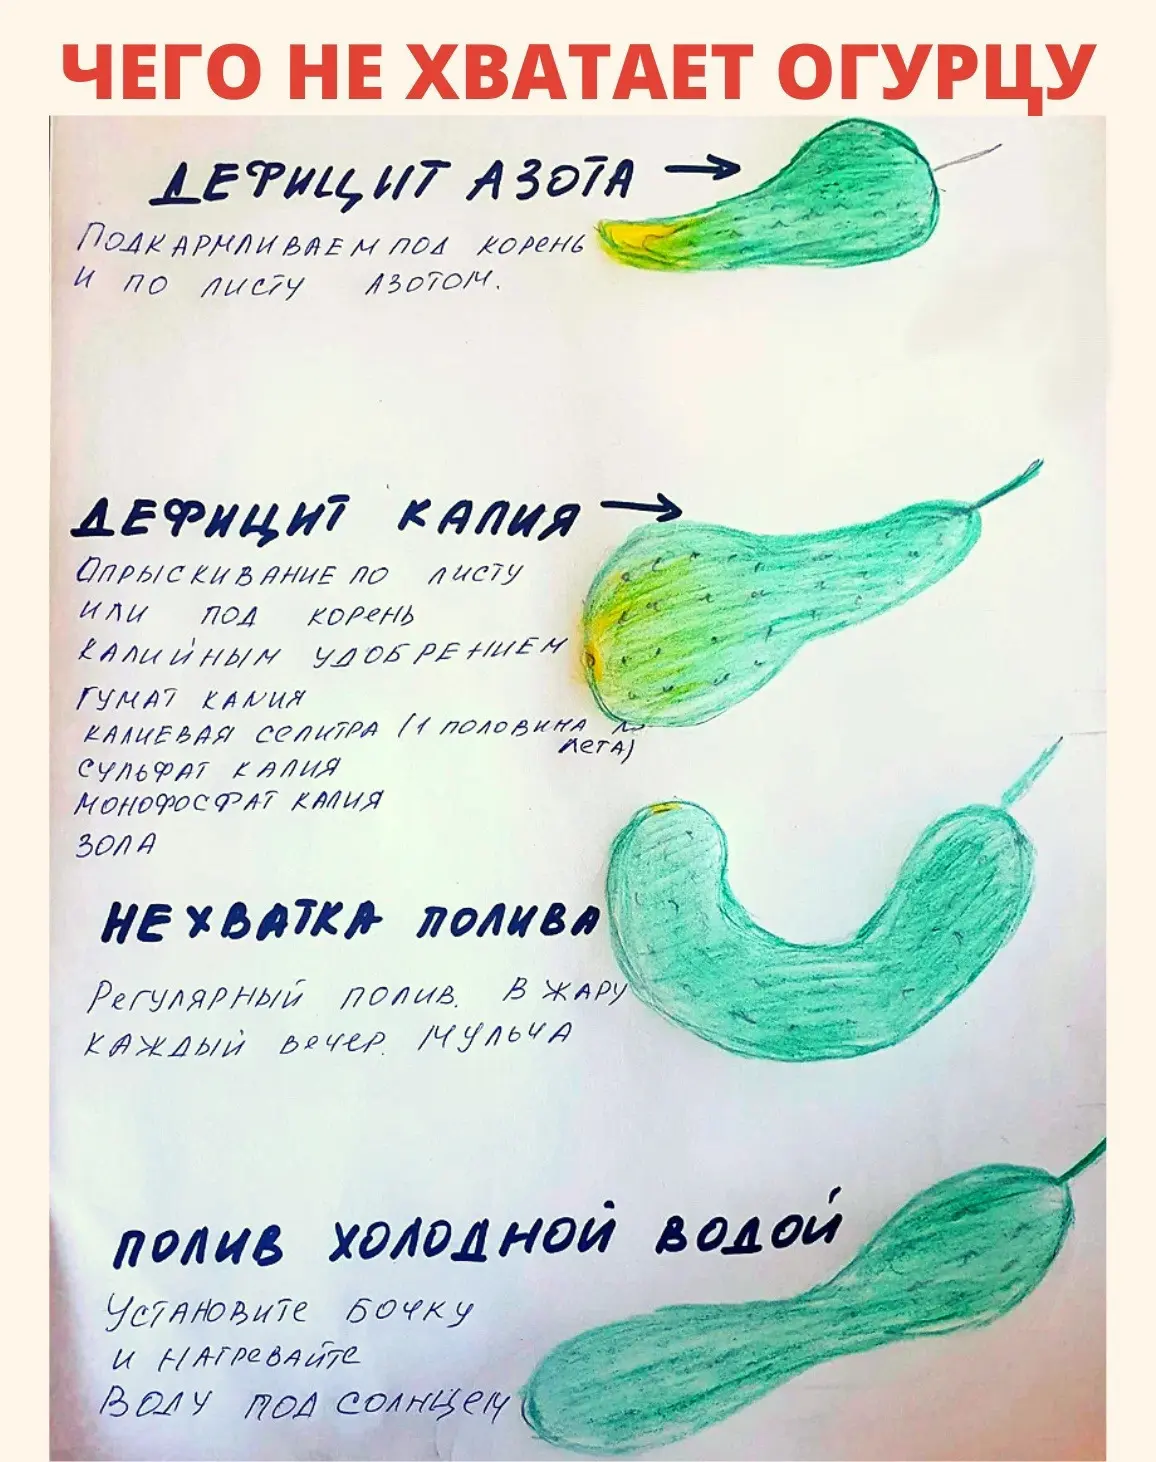 ЧЕГО НЕ ХВАТАЕТ ОГУРЦУ
ДЕФИЦИТ АЗОТА →
ПОДКАРМЛИВАЕМ ПОД КОРЕНЬ
И ПО ЛИСТУ АЗОТОМ.
ДЕФИЦИТ КАЛИЯ →
ОПРЫСКИВАНИЕ ПО ЛИСТУ
ИЛИ ПОД КОРЕНЬ
КАЛИЙНЫМ УДОБРЕНИЕМ
ГУМАТ КАЛИЯ
КАЛИЕВАЯ СЕЛИТРА (1 ПОЛОВИНА
ЛЕТА)
СУЛЬФАТ КАЛИЯ
МОНОФОСФАТ КАЛИЯ
ЗОЛА
НЕХВАТКА ПОЛИВА
РЕГУЛЯРНЫЙ ПОЛИВ. В ЖАРУ
КАЖДЫЙ ВЕЧЕР. МУЛЬЧА
ПОЛИВ ХОЛОДНОЙ ВОДОЙ
УСТАНОВИТЕ БОЧКУ
И НАГРЕВАЙТЕ
ВОДУ ПОД СОЛНЦЕМ